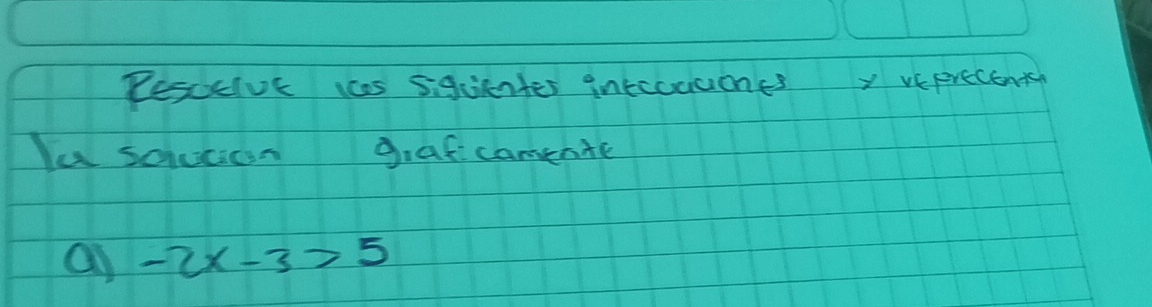 Resuelve las siguientes inecuaciones y reprecenta
la solucion graficamente
a) -2x-3>5